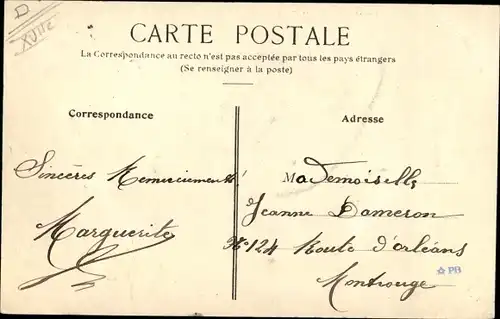 D
XVIIe
CARTE POSTALE
La Correspondance au recto n'est pas acceptée par tous les pays étrangers
(Se renseigner à la poste)
Correspondance
Adresse
Sincères Remerciements!
Marguerite
Mademoiselle
Jeanne Dameron
No 124 Route d'orléans
Montrouge
☆ PB